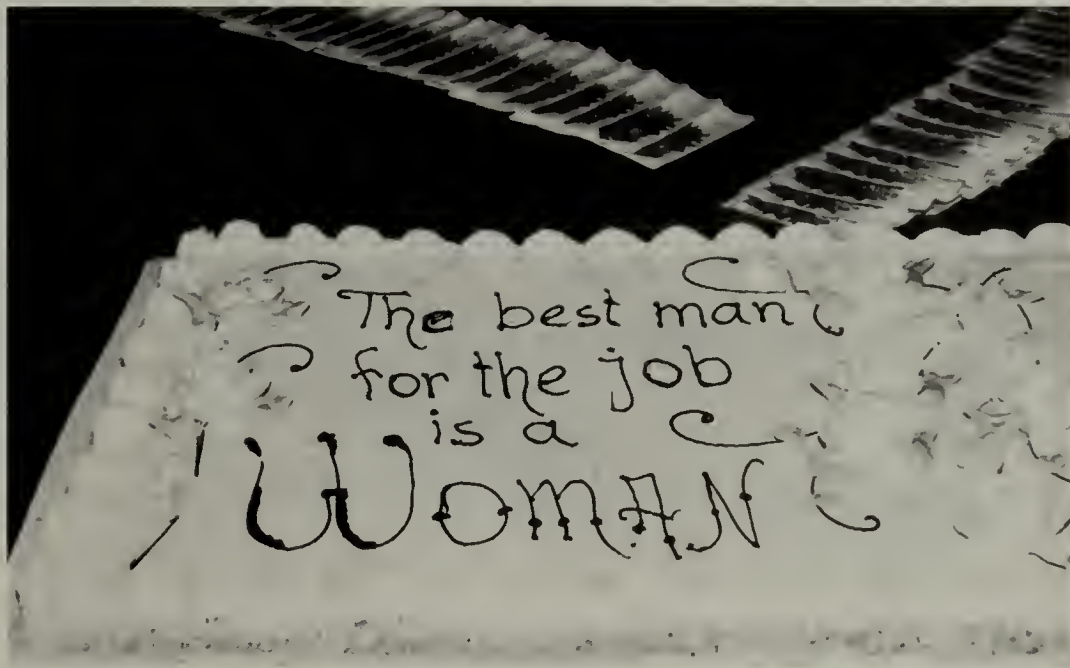 The best man
for the job
is a
WOMAN